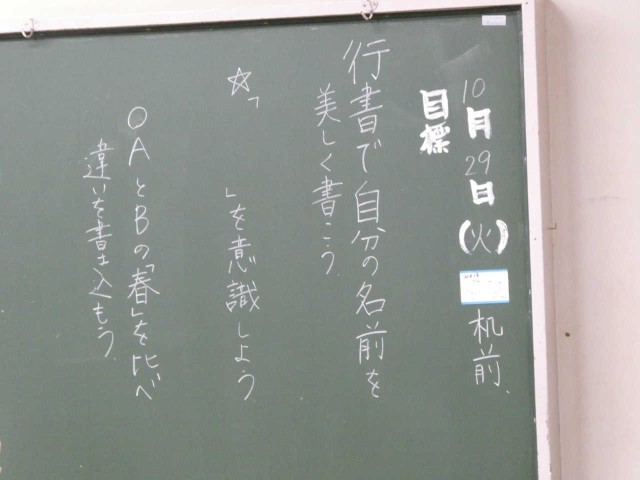 10月29日(火) 机前、
目標
行書で自分の名前を
美しく書こう。
☆「　　」を意識しよう
○AとBの「春」を比べ
違いを書き込もう。